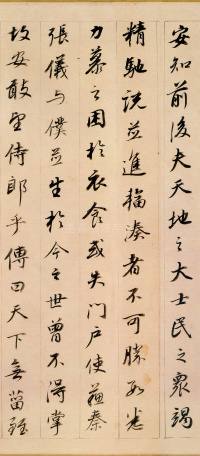 安知前後夫天地之大士民之衆竭
精馳説並進輻湊者不可勝數悉
力慕之困於衣食或失門户使蘇秦
張儀与僕並生於今之世曾不得掌
故安敢望侍郎乎傳曰天下無菑雖